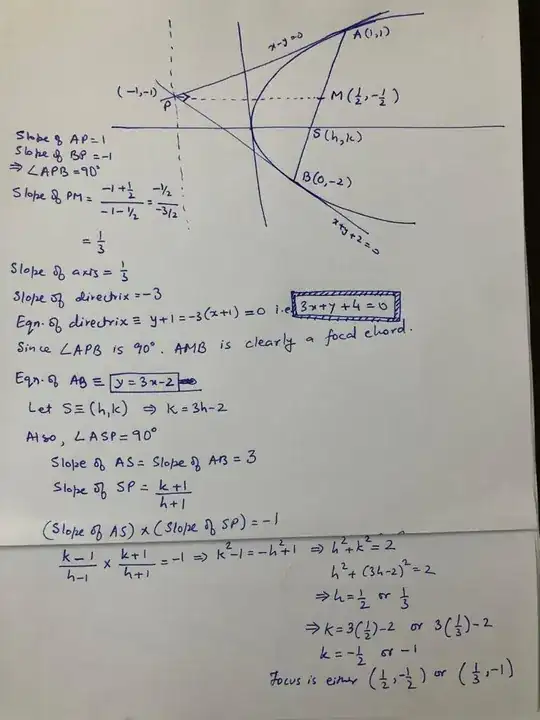 x-y=0
A(1,1)
(-1,-1)
P
M(1/2, -1/2)
S(h,k)
B(0,-2)
x+y+2=0
Slope of AP = 1
Slope of BP = -1
⇒ ∠APB = 90°
Slope of PM = (-1+1/2)/(-1-1/2) = (-1/2)/(-3/2)
= 1/3
Slope of axis = 1/3
Slope of directrix = -3
Eqn. of directrix ≡ y+1 = -3(x+1) = 0 i.e. 3x+y+4=0
Since ∠APB is 90°. AMB is clearly a focal chord.
Eqn. of AB ≡ y=3x-2
Let S≡(h,k) ⇒ k=3h-2
Also, ∠ASP=90°
Slope of AS = Slope of AB = 3
Slope of SP = (k+1)/(h+1)
(Slope of AS) × (Slope of SP) = -1
(k-1)/(h-1) × (k+1)/(h+1) = -1 ⇒ k²-1 = -h²+1 ⇒ h²+k²=2
h²+(3h-2)²=2
⇒ h = 1/2 or 1/3
⇒ k = 3(1/2)-2 or 3(1/3)-2
k = -1/2 or -1
Focus is either (1/2, -1/2) or (1/3, -1)